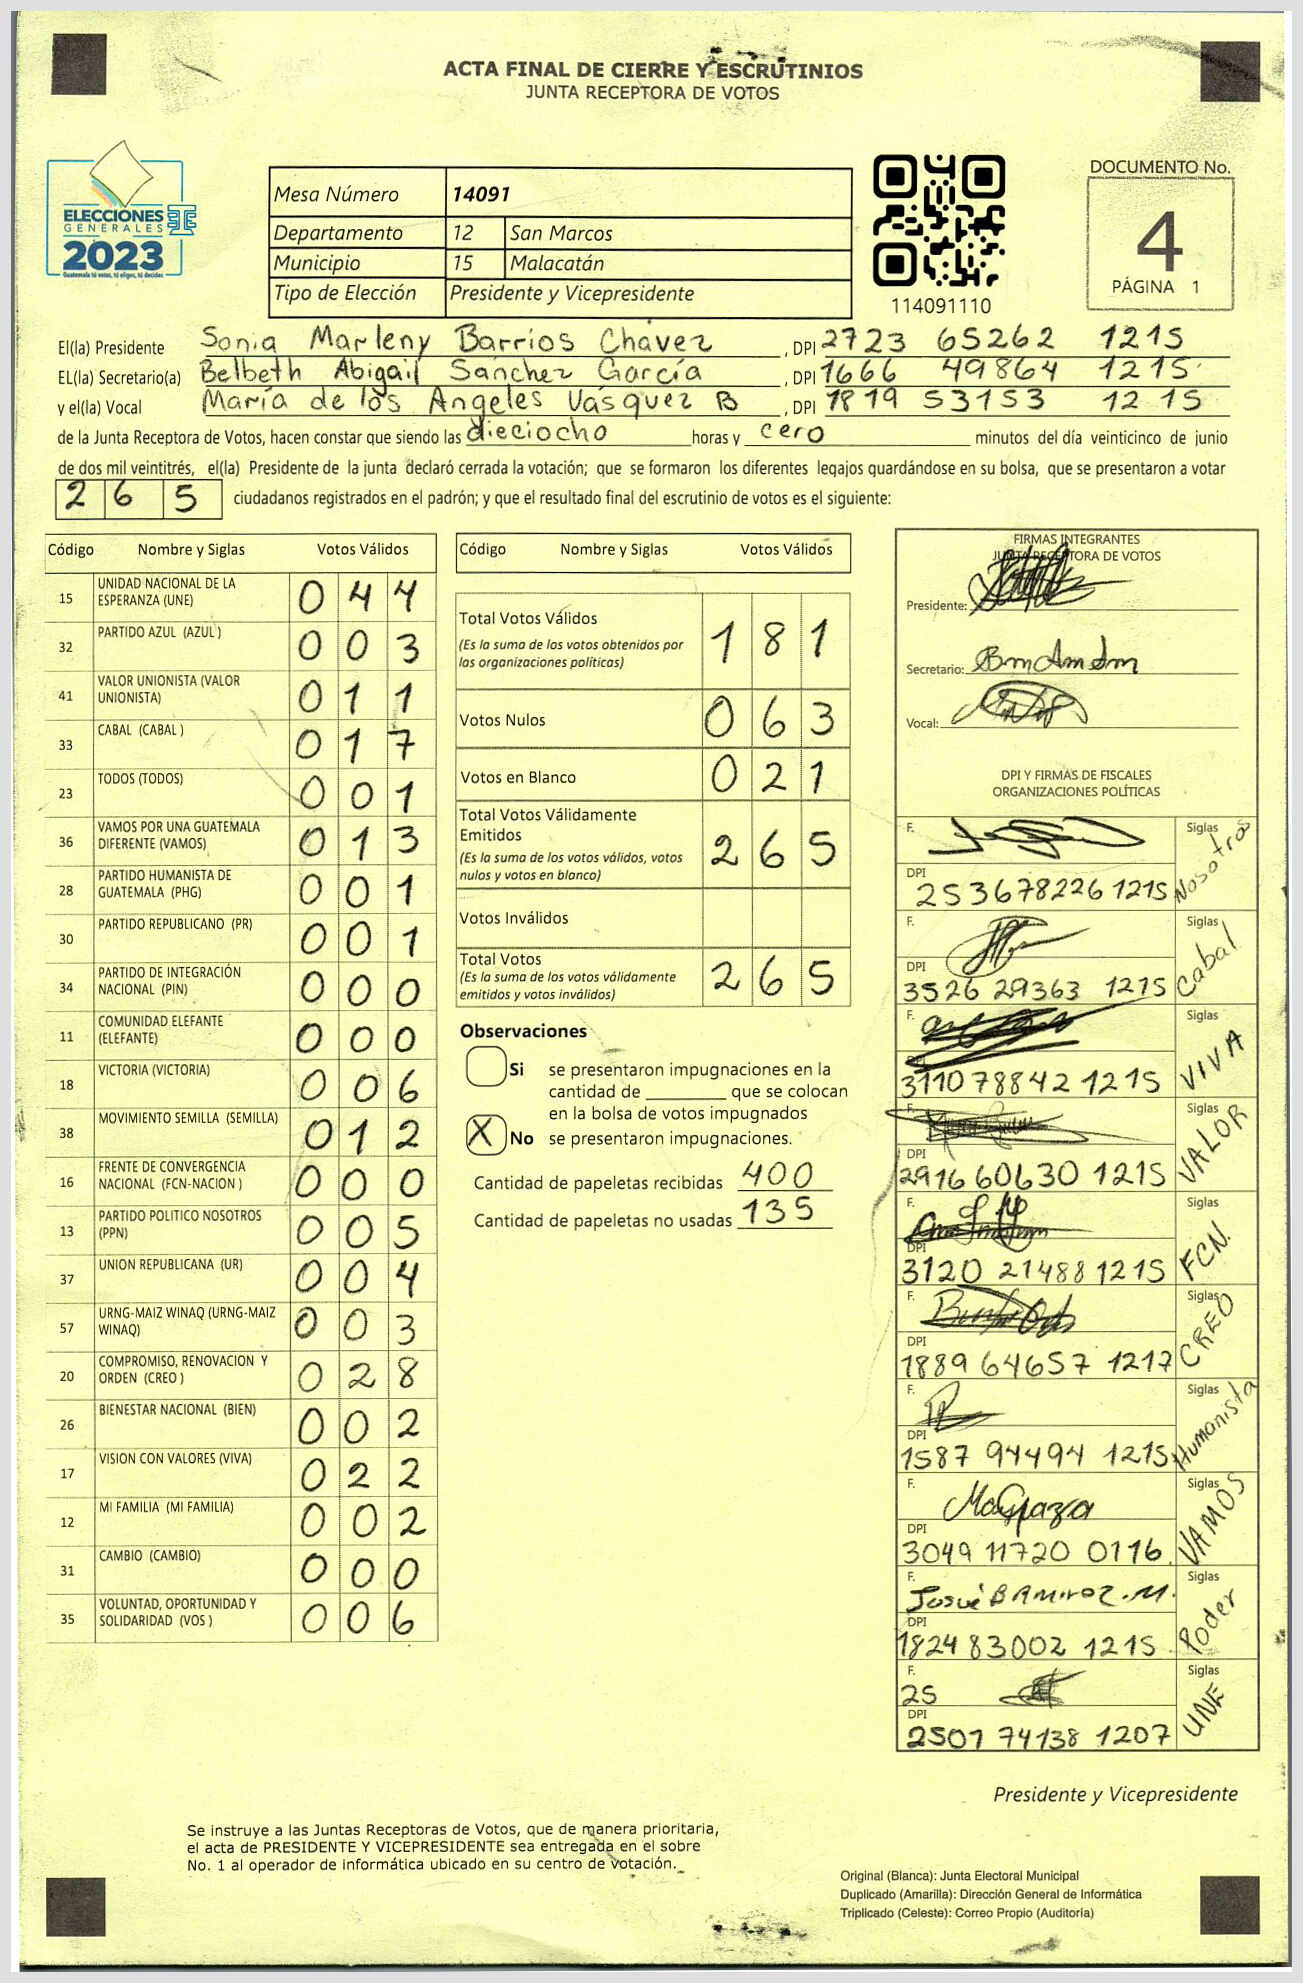 ACTA FINAL DE CIERRE Y ESCRUTINIOS
JUNTA RECEPTORA DE VOTOS
ELECCIONES
GENERALES
2023
Guatemala tú votas, tú eliges, tú decides
Mesa Número 14091
Departamento 12 San Marcos
Municipio 15 Malacatán
Tipo de Elección Presidente y Vicepresidente
114091110
DOCUMENTO No.
4
PÁGINA 1
El(la) Presidente Sonia Marleny Barrios Chávez, DPI 2723 65262 1215
EL(la) Secretario(a) Belbeth Abigail Sánchez García, DPI 1666 49864 1215
y el(la) Vocal María de los Angeles Vásquez B, DPI 1819 53153 1215
de la Junta Receptora de Votos, hacen constar que siendo las dieciocho horas y cero minutos del día veinticinco de junio
de dos mil veintitrés, el(la) Presidente de la junta declaró cerrada la votación; que se formaron los diferentes legajos guardándose en su bolsa, que se presentaron a votar
265 ciudadanos registrados en el padrón; y que el resultado final del escrutinio de votos es el siguiente:
Código Nombre y Siglas Votos Válidos
15 UNIDAD NACIONAL DE LA ESPERANZA (UNE) 044
32 PARTIDO AZUL (AZUL ) 003
41 VALOR UNIONISTA (VALOR UNIONISTA) 011
33 CABAL (CABAL ) 017
23 TODOS (TODOS) 001
36 VAMOS POR UNA GUATEMALA DIFERENTE (VAMOS) 013
28 PARTIDO HUMANISTA DE GUATEMALA (PHG) 001
30 PARTIDO REPUBLICANO (PR) 001
34 PARTIDO DE INTEGRACIÓN NACIONAL (PIN) 000
11 COMUNIDAD ELEFANTE (ELEFANTE) 000
18 VICTORIA (VICTORIA) 006
38 MOVIMIENTO SEMILLA (SEMILLA) 012
16 FRENTE DE CONVERGENCIA NACIONAL (FCN-NACION ) 000
13 PARTIDO POLITICO NOSOTROS (PPN) 005
37 UNION REPUBLICANA (UR) 004
57 URNG-MAIZ WINAQ (URNG-MAIZ WINAQ) 003
20 COMPROMISO, RENOVACION Y ORDEN (CREO ) 028
26 BIENESTAR NACIONAL (BIEN) 002
17 VISION CON VALORES (VIVA) 022
12 MI FAMILIA (MI FAMILIA) 002
31 CAMBIO (CAMBIO) 000
35 VOLUNTAD, OPORTUNIDAD Y SOLIDARIDAD (VOS ) 006
Código Nombre y Siglas Votos Válidos
Total Votos Válidos 181
(Es la suma de los votos obtenidos por
las organizaciones políticas)
Votos Nulos 063
Votos en Blanco 021
Total Votos Válidamente
Emitidos 265
(Es la suma de los votos válidos, votos
nulos y votos en blanco)
Votos Inválidos
Total Votos 265
(Es la suma de los votos válidamente
emitidos y votos inválidos)
Observaciones
Si se presentaron impugnaciones en la
cantidad de ________ que se colocan
en la bolsa de votos impugnados
X No se presentaron impugnaciones.
Cantidad de papeletas recibidas 400
Cantidad de papeletas no usadas 135
FIRMAS INTEGRANTES
JUNTA RECEPTORA DE VOTOS
Presidente:
Secretario:
Vocal:
DPI Y FIRMAS DE FISCALES
ORGANIZACIONES POLÍTICAS
F. Siglas Nosotros
DPI 253678226 1215
F. Siglas Cabal
DPI 3526 29363 1215
F. Siglas VIVA
DPI 3110 78842 1215
F. Siglas VALOR
DPI 2916 60630 1215
F. Siglas FCN.
DPI 3120 21488 1215
F. Siglas CREO
DPI 1889 64657 1217
F. Siglas Humanista
DPI 1587 94494 1215
F. Siglas VAMOS
DPI 3049 11720 0116
F. Josué B Ramirez .M. Siglas Poder
DPI 1824 83002 1215
F. 25 Siglas UNE
DPI 2507 74138 1207
Presidente y Vicepresidente
Se instruye a las Juntas Receptoras de Votos, que de manera prioritaria,
el acta de PRESIDENTE Y VICEPRESIDENTE sea entregada en el sobre
No. 1 al operador de informática ubicado en su centro de votación.
Original (Blanca): Junta Electoral Municipal
Duplicado (Amarilla): Dirección General de Informática
Triplicado (Celeste): Correo Propio (Auditoría)